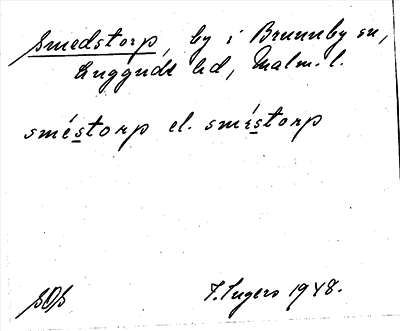 Smedstorp, by i Brunnby sn,
Luggude hd, Malm. l.
sméstorp el. smístorp
SOS
T. Ingers 1948.